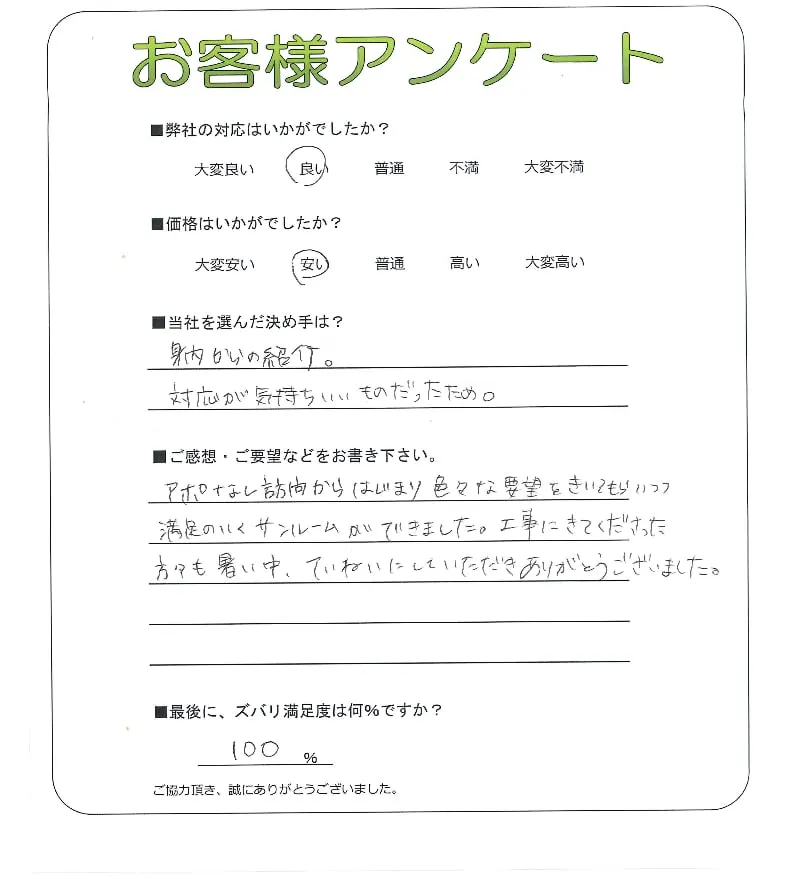 お客様アンケート
■弊社の対応はいかがでしたか?
大変良い 良い 普通 不満 大変不満
■価格はいかがでしたか?
大変安い 安い 普通 高い 大変高い
■当社を選んだ決め手は?
身内からの紹介。
対応が気持ちいいものだったため。
■ご感想・ご要望などをお書き下さい。
アポなし訪問からはじまり色々な要望をきいてもらいつつ
満足のいくサンルームができました。工事にきてくださった
方々も暑い中、ていねいにしていただきありがとうございました。
■最後に、ズバリ満足度は何%ですか?
100 %
ご協力頂き、誠にありがとうございました。